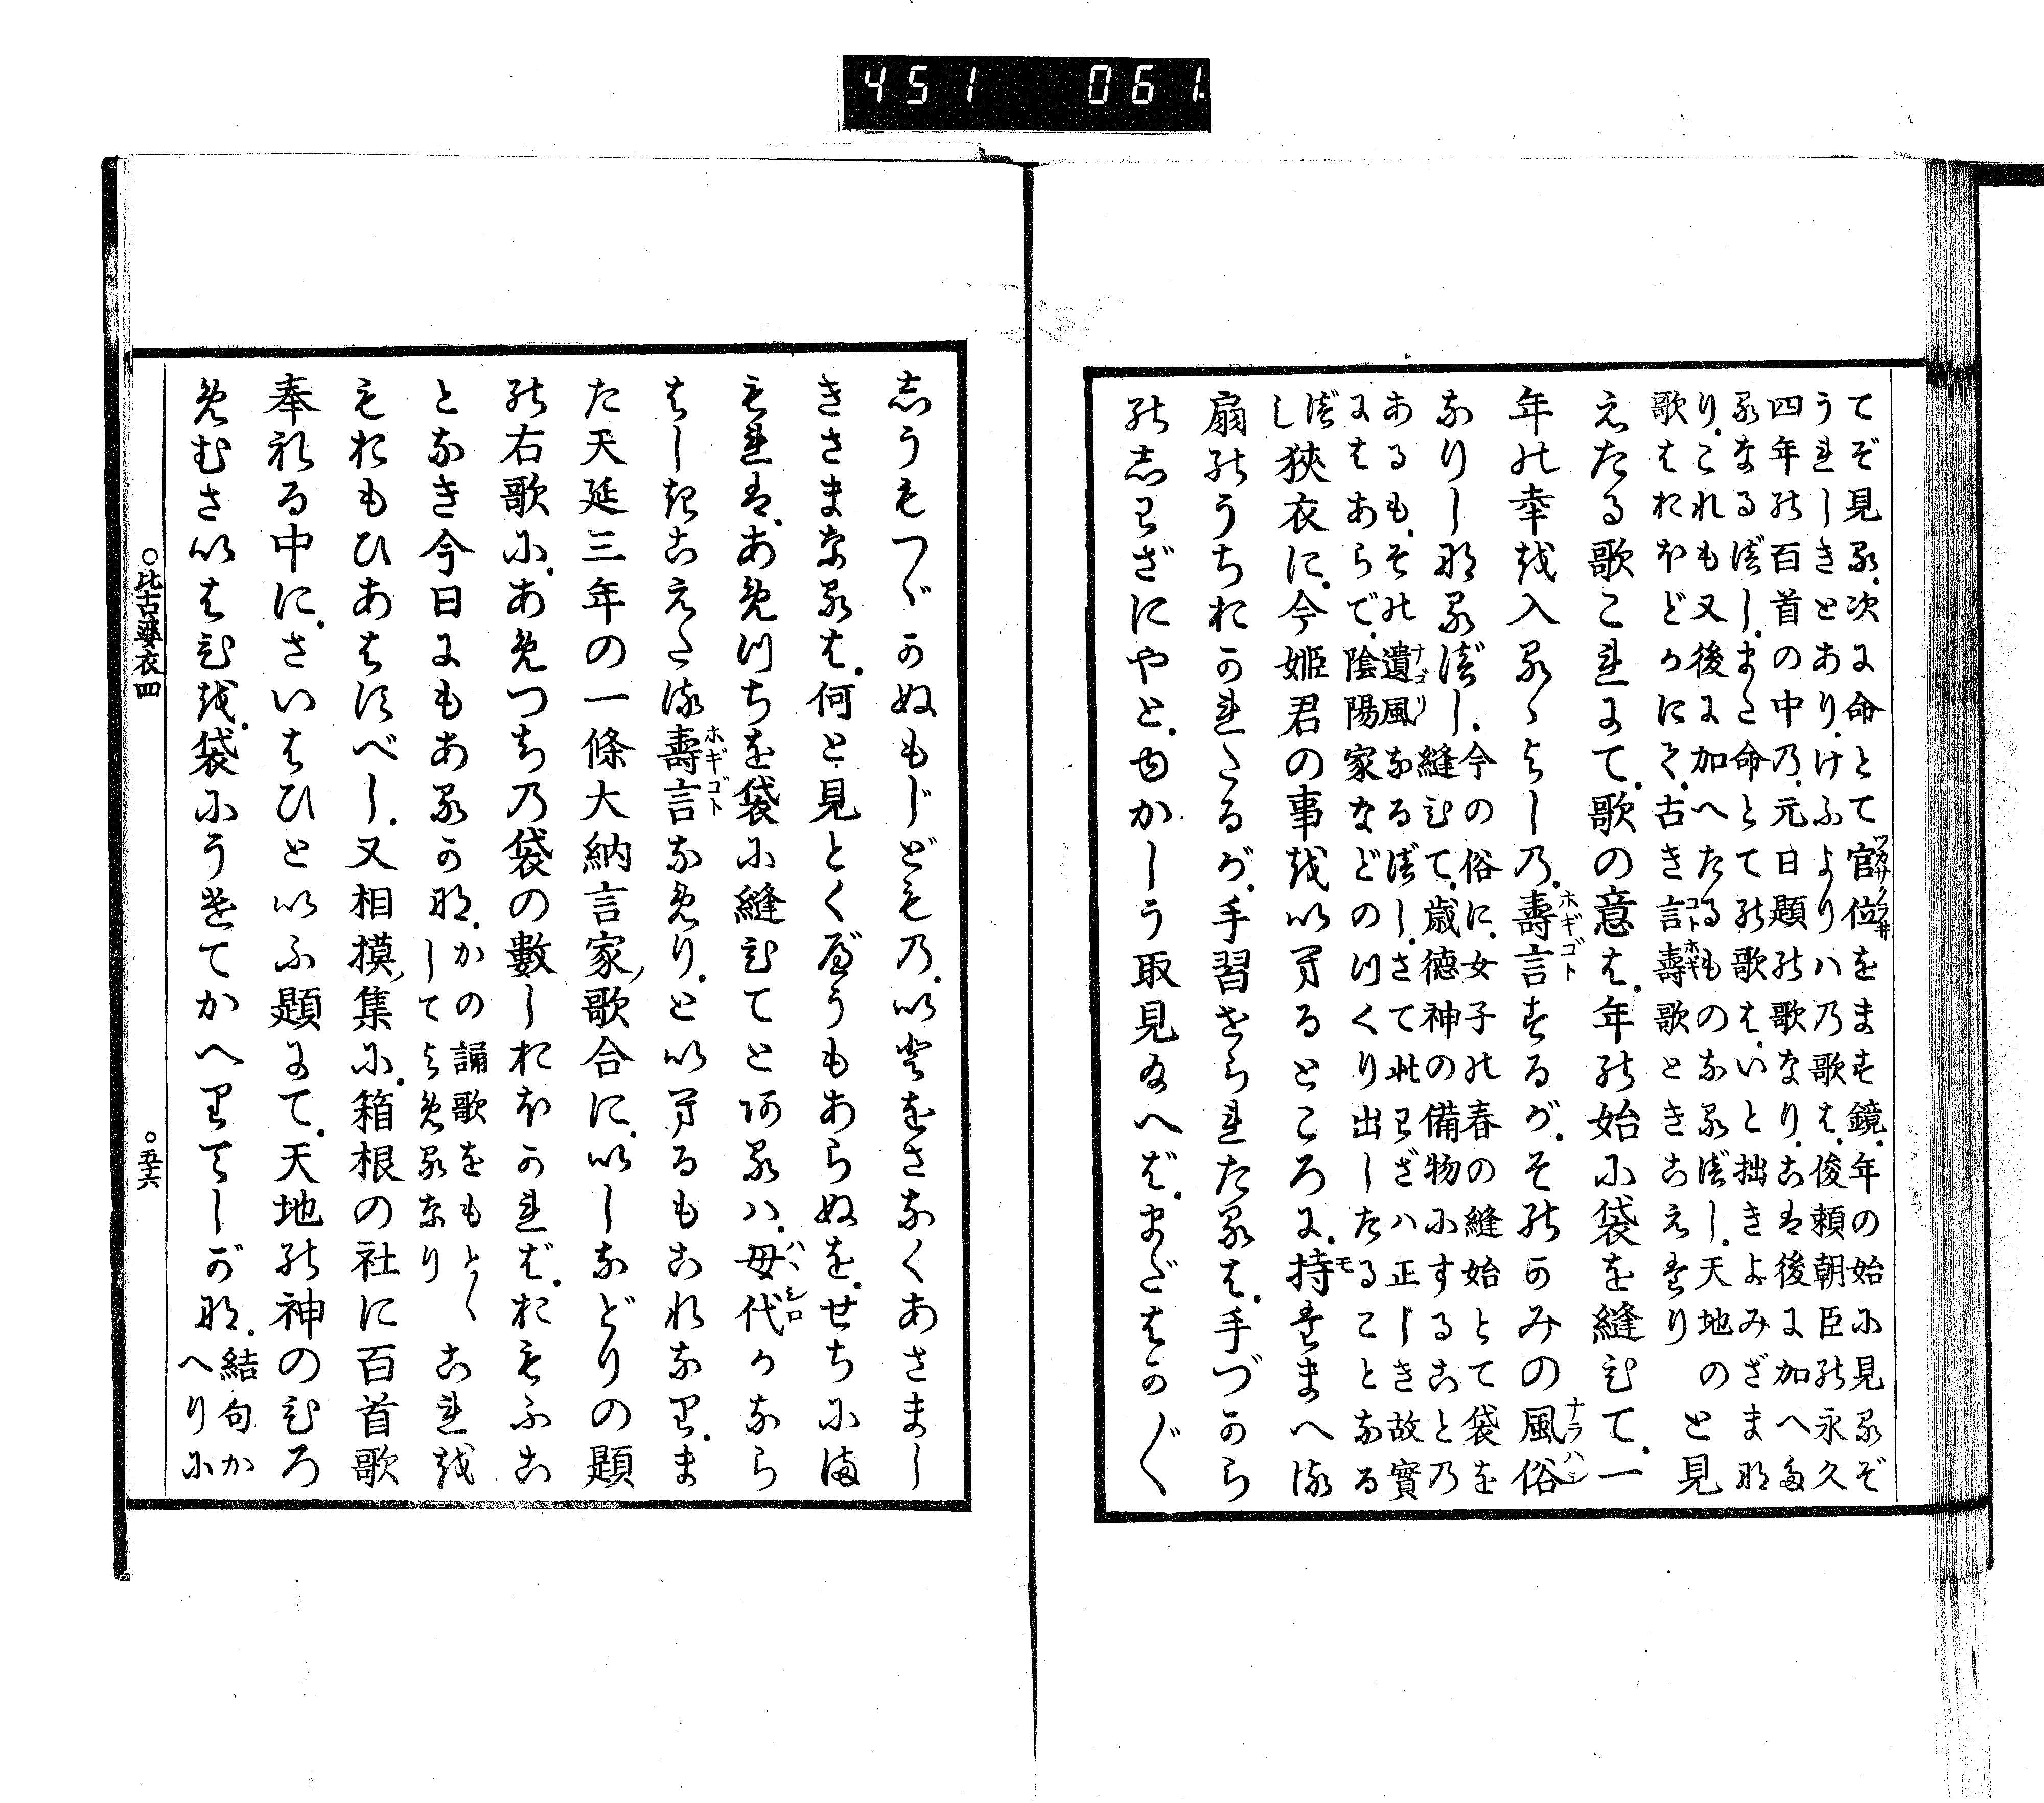 451 061.
てぞ見る。次に命とて官位をます鏡。年の始に見るぞ
うれしきとあり。けふよりハの歌は。俊頼朝臣の永久
四年の百首の中の。元日題の歌なり。こは後に加へた
るなるべし。また命とての歌は。いと拙きよみざまな
り。これも又後に加へたるものなるべし。天地の
歌はおほどかにて。古き言壽歌ときこえたり
と見
えたる歌これにて。歌の意は。年の始に袋を縫ひて。一
年の幸を入るゝよしの。壽言するが。そのかみの風俗
なりしなるべし。今の俗に。女子の春の縫始とて袋を
縫ひて。歳徳神の備物にすることの
あるも。その遺風なるべし。さて此わざハ正しき故實
にはあらで。陰陽家などのつくり出したることなる
べ
し
狹衣に。今姫君の事をいへるところに。持たまへる
扇のうちおかれたるが。手習せられたるは。手づから
のしわざにやと。ゆかしう取見給へば。まだはか〴〵
しうもつゞかぬもじどもの。いとをさなくあさまし
きさまなるは。何と見とくべうもあらぬを。せちにま
もれば。あめつちを袋に縫ひてとあるハ。母代かなら
はしきこえたる壽言なめり。といへるもこれなり。ま
た天延三年の一條大納言家歌合に。いしなどりの題
の右歌に。あめつちの袋の數しおほかれば。おもふこ
となき今日にもあるかな。
かの誦歌をもとゝ
してよめるなり
これを
もおもひあはすべし。又相摸集に。箱根の社に百首歌
奉れる中に。さいはひといふ題にて。天地の神のひろ
めむさいはひを。袋にうけてかへりてしがな。
結句か
へりに
○比古婆衣四
○五十六